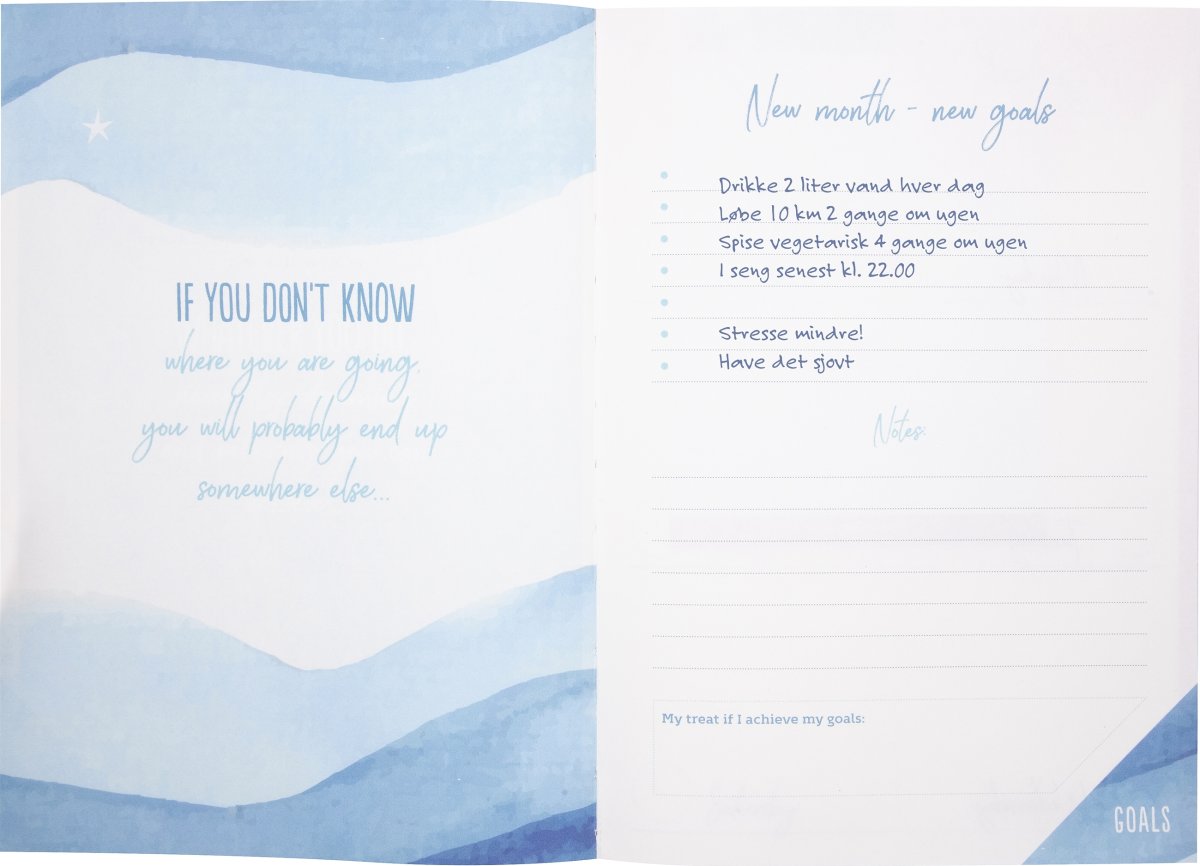 IF YOU DON'T KNOW
where you are going,
you will probably end up
somewhere else...
New month - new goals
Drikke 2 liter vand hver dag
Løbe 10 km 2 gange om ugen
Spise vegetarisk 4 gange om ugen
I seng senest kl. 22.00
Stresse mindre!
Have det sjovt
Notes:
My treat if I achieve my goals:
GOALS